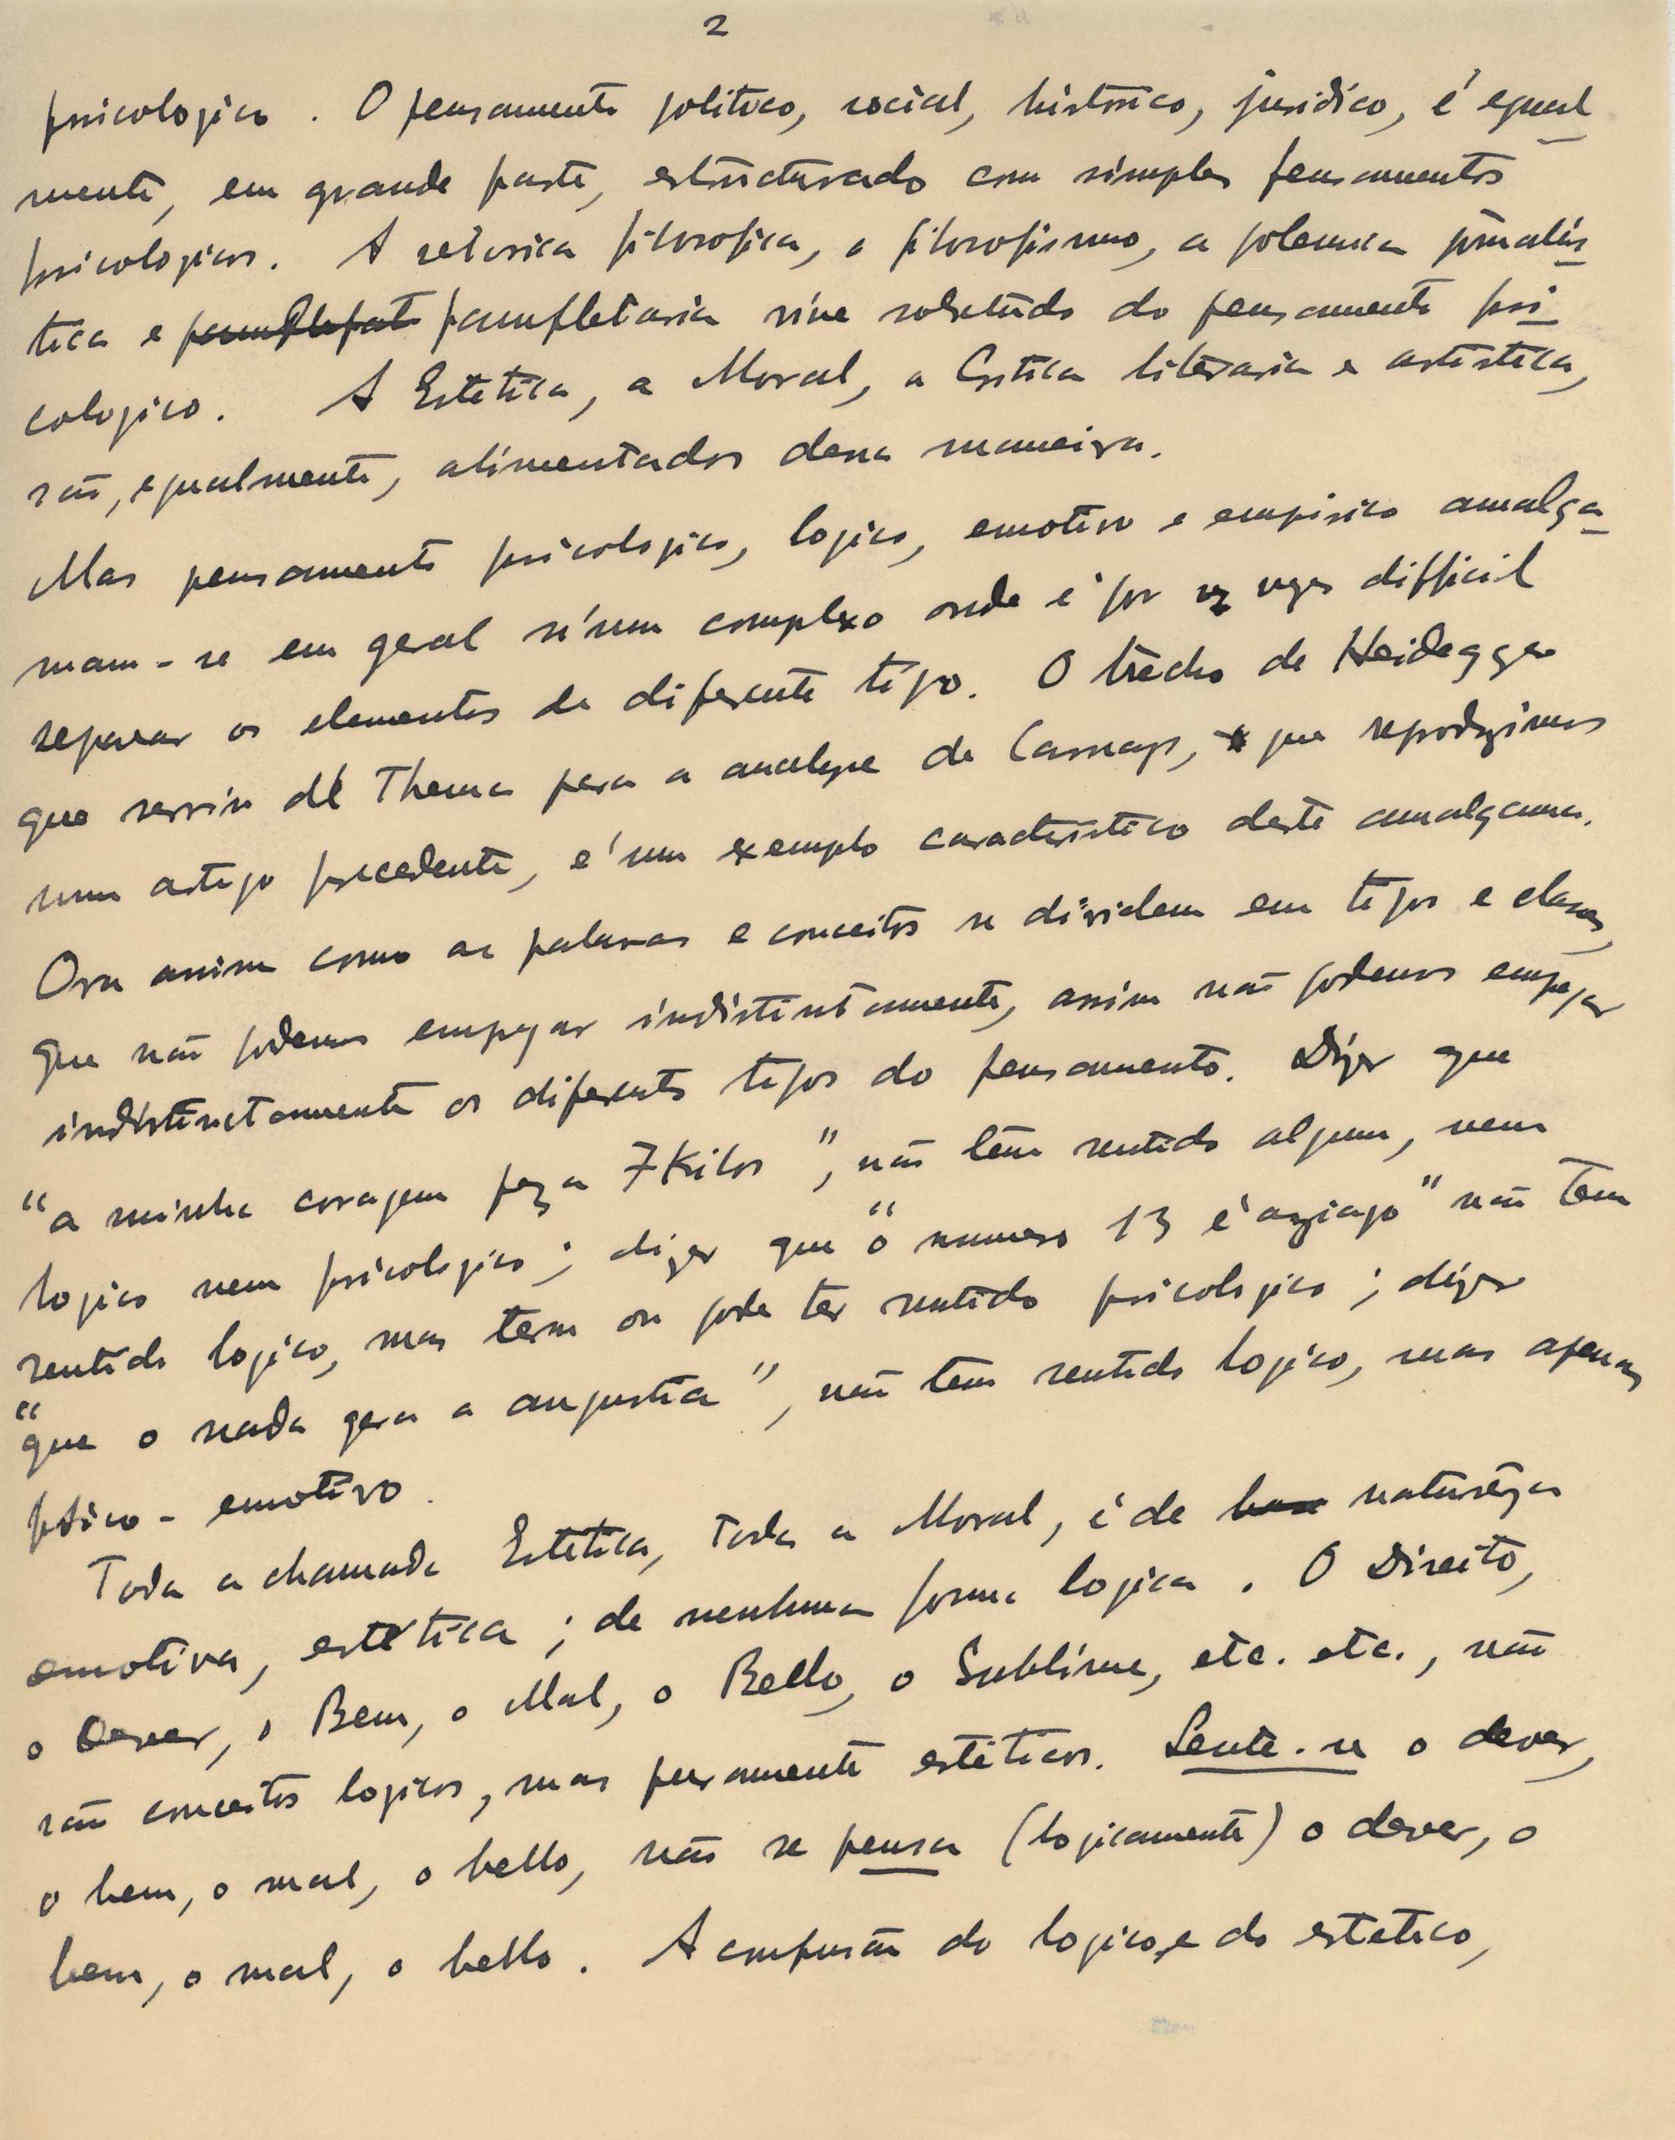 2
psicologico. O pensamento politico, social, historico, juridico, é egual
mente, em grande parte, estructurado com simples pensamentos
psicologicos. A retorica filosofica, o filosofismo, a polemica jornalis
tica e pamfletaria vive sobretudo do pensamento psi
cologico. A Estetica, a Moral, a Critica literaria e artistica,
são, egualmente, alimentados dessa maneira.
Mas pensamento psicologico, logico, emotivo e empirico amalga
mam-se em geral n'um complexo onde é por vezes difficil
separar os elementos de diferente tipo. O trecho de Heidegger
que serviu de Thema para a analyse de Carnap, que reproduzimos
num artigo precedente, é um exemplo caracteristico deste amalgama.
Ora assim como as palavras e conceitos se dividem em tipos e classes,
que não podemos empregar indistintamente, assim não podemos empregar
indistinctamente os diferentes tipos do pensamento. Dizer que
"a minha coragem peza 7 Kilos", não tem sentido algum, nem
logico nem psicologico; dizer que "o numero 13 é aziago" não tem
sentido logico, mas tem ou pode ter sentido psicologico; dizer
"que o nada gera a angustia", não tem sentido logico, mas apenas
psico-emotivo.
Toda a chamada Estetica, toda a Moral, é de natureza
emotiva, estetica; de nenhuma forma logica. O Direito,
o Dever, o Bem, o Mal, o Bello, o Sublime, etc. etc., não
são conceitos logicos, mas puramente esteticos. Sente-se o dever,
o bem, o mal, o bello, não se pensa (logicamente) o dever, o
bem, o mal, o bello. A confusão do logico e do estetico,